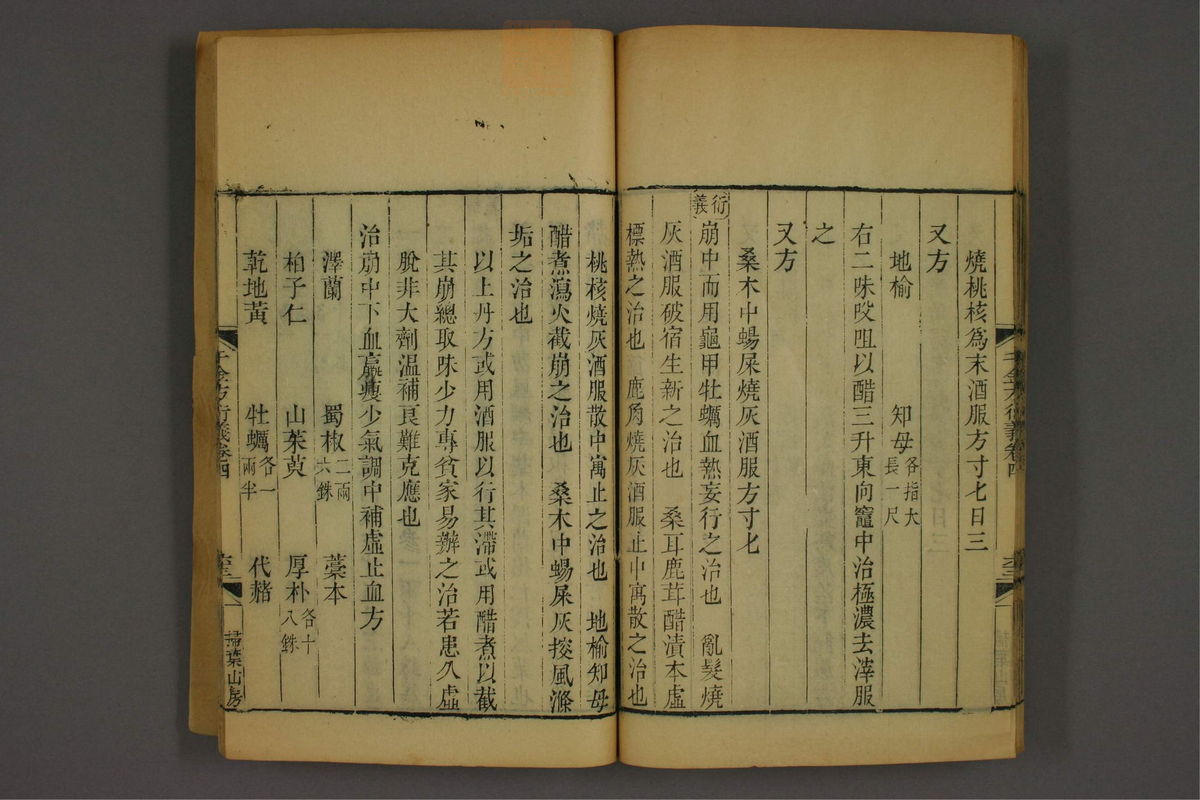 燒桃核爲末酒服方寸匕日三
又方
地榆　知母各指大長一尺
右二味㕮咀以醋三升東向竈中治極濃去滓服
之
又方
桑木中蝎屎燒灰酒服方寸匕
衍義
崩中而用龜甲牡蠣血熱妄行之治也　亂髮燒
灰酒服破宿生新之治也　桑耳鹿茸醋漬本虛
標熱之治也　鹿角燒灰酒服止中寓散之治也
桃核燒灰酒服散中寓止之治也　地榆知母
醋煮瀉火截崩之治也　桑木中蝎屎灰搜風滌
垢之治也
以上丹方或用酒服以行其滯或用醋煮以截
其崩總取味少力專貧家易辦之治若患久虛
脫非大劑溫補良難克應也
治崩中下血羸瘦少氣調中補虛止血方
澤蘭　蜀椒二兩六銖　藁本
柏子仁　山茱萸　厚朴各十八銖
乾地黃　牡蠣各一兩半　代赭
千金方衍義卷四
掃葉山房